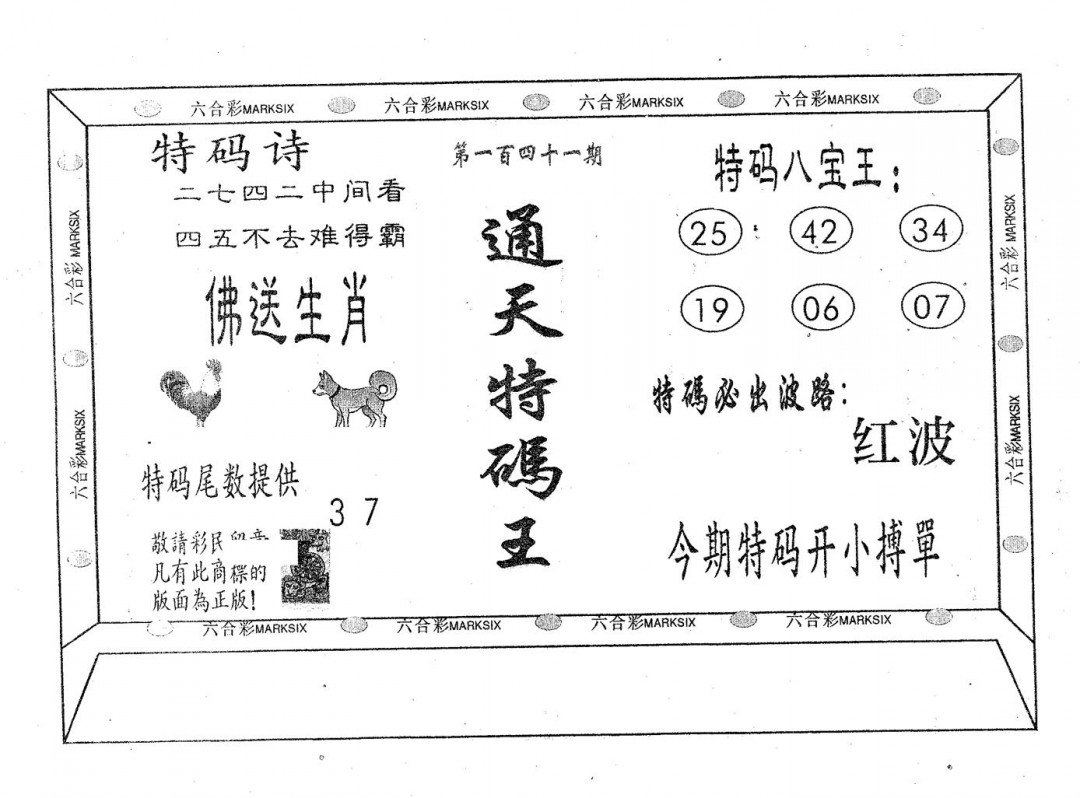 六合彩MARKSIX 六合彩MARKSIX 六合彩MARKSIX 六合彩MARKSIX
六合彩 MARKSIX
六合彩MARKSIX
特码诗
二七四二中间看
四五不去难得霸
佛送生肖
特码尾数提供
3 7
敬請彩民
凡有此商標的
版面為正版!
第一百四十一期
通天特碼王
特码八宝王:
25 42 34
19 06 07
特碼必出波路:
红波
今期特码开小搏單
六合彩 MARKSIX
六合彩MARKSIX
六合彩MARKSIX 六合彩MARKSIX 六合彩MARKSIX 六合彩MARKSIX